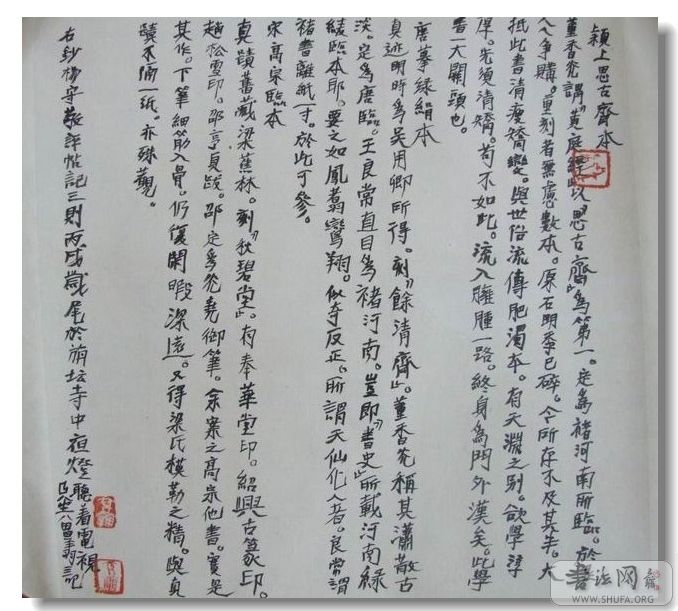 颍上思古齋本
董香光謂《黄庭經》以《思古齋》為第一。定為褚河南所臨。於
人人争購。重刻者無慮數本。原石明季已碎。今所存不及其半。大
抵此書清瘦矯變。與世俗流傳肥濁本。有天淵之别。欲學淳
厚。先須清矯。苟不如此。流入臃腫一路。終身為門外漢矣。此學
書一大關頭也。
唐摹绿絹本
真迹明時為吴用卿所得。刻《餘清齋》。董香光稱其瀟散古
淡。定為唐臨。王良常直目為褚河南。豈即《書史》所載河南緑
綾臨本耶。要之如鳳翥鸞翔。似奇反正。所謂天仙化人者。良常謂
褚書離紙一寸。於此可參。
宋高宗臨本
真蹟舊藏梁蕉林。刻《秋碧堂》。有奉華堂印。紹興古篆印。
趙松雪印。邵亨貞跋。邵定為光堯御筆。余案之高宗他書。實是
其作。下筆細筋入骨。仍復閒暇深遠。又得梁氏模勒之精。與真
蹟不隔一紙。亦殊觀。
右鈔楊守敬評帖記三則丙戌歲尾於旃坛寺中夜燈聽着電視
八翁記
書法网
WWW.SHUFA.ORG